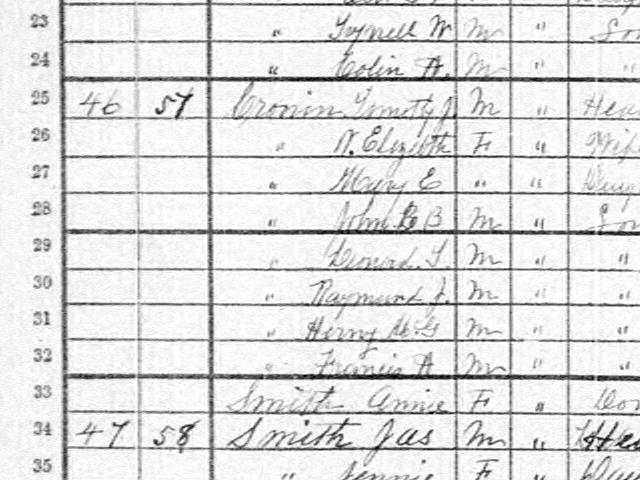 23 " W M " Son
24 " Colin A. M " "
25 46 57 Cronin Timothy J. M " Hea
26 " N. Elizabeth F " Wife
27 " Mary E " " Daug
28 " John B M " Son
29 " Leonard T. M " "
30 " Raymund J. M " "
31 " Henry M " "
32 " Francis A M " "
33 Smith Annie F " Dom
34 47 58 Smith Jas M " Hea
35 " Jennie F " Dau